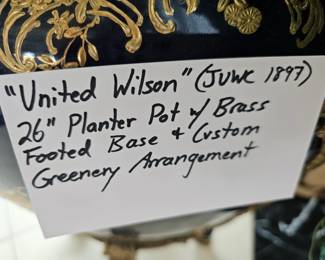 "United Wilson" (JUWC 1897)
26" Planter Pot w/ Brass
Footed Base + Custom
Greenery Arrangement